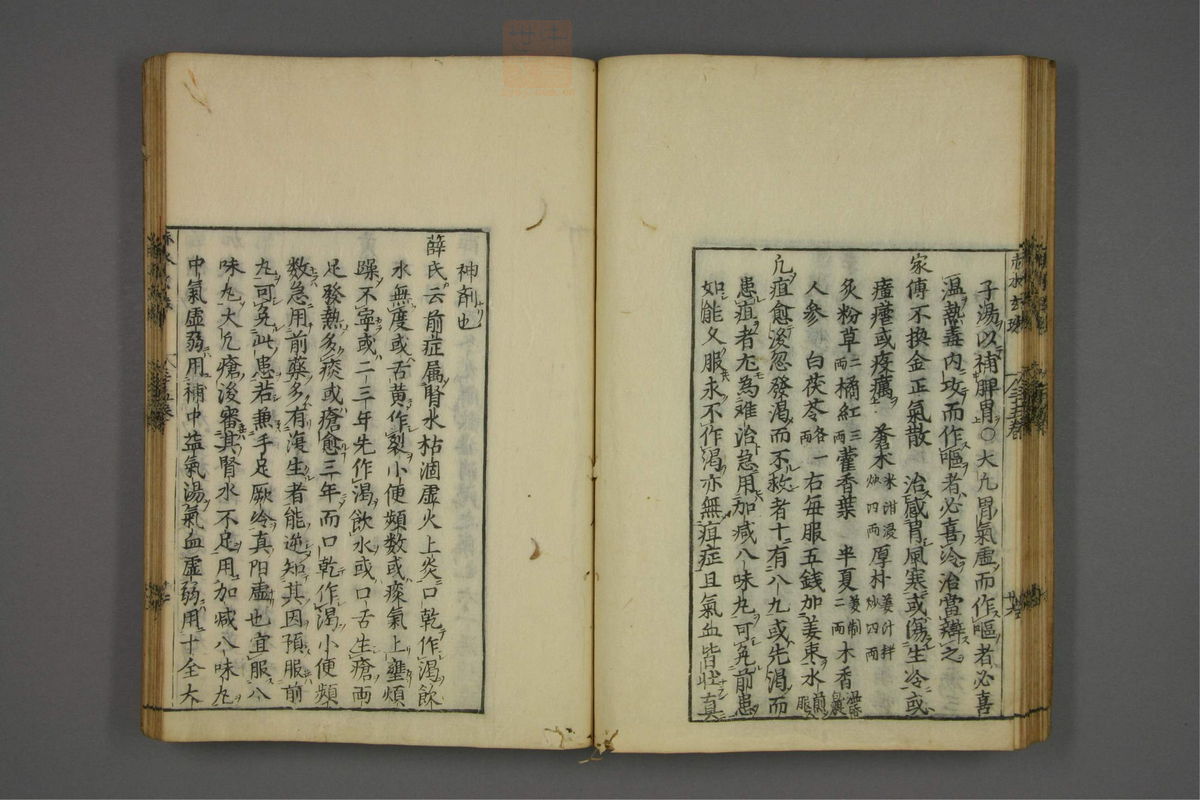 子湯以補脾胃〇大凡胃氣虛而作嘔者必喜
溫熱毒內攻而作嘔者必喜冷治當辯之
家傳不換金正氣散　治感胃風寒或傷生冷或
瘴或疫癘　蒼朮米泔浸炒四兩厚朴姜汁拌炒四兩
炙粉草二兩橘紅三兩藿香葉　半夏姜制二兩木香
人參　白茯苓各一兩右每服五錢加姜棗水煎服
凡疽愈後忽發渴而不救者十有八九或先渴而
患疽者尤為难治急用加减八味丸可免前患
如能久服永不作渴亦無疽症且氣血皆壯真
神剤也
薛氏云前症属腎水枯涸虛火上炎口乾作渴飲
水無度或舌黄作裂小便頻数或痰氣上壅煩
躁不寧或二三年先作渴飲水或口舌生瘡両
足發熱多痰或瘡愈三年而口乾作渴小便頻
数急用前藥多有復生者能逆知其因預服前
丸可免此患若兼手足厥冷真阳虛也宜服八
味丸大凡瘡後審其腎水不足用加减八味丸
中氣虛弱用補中益氣湯氣血虛弱用十全大